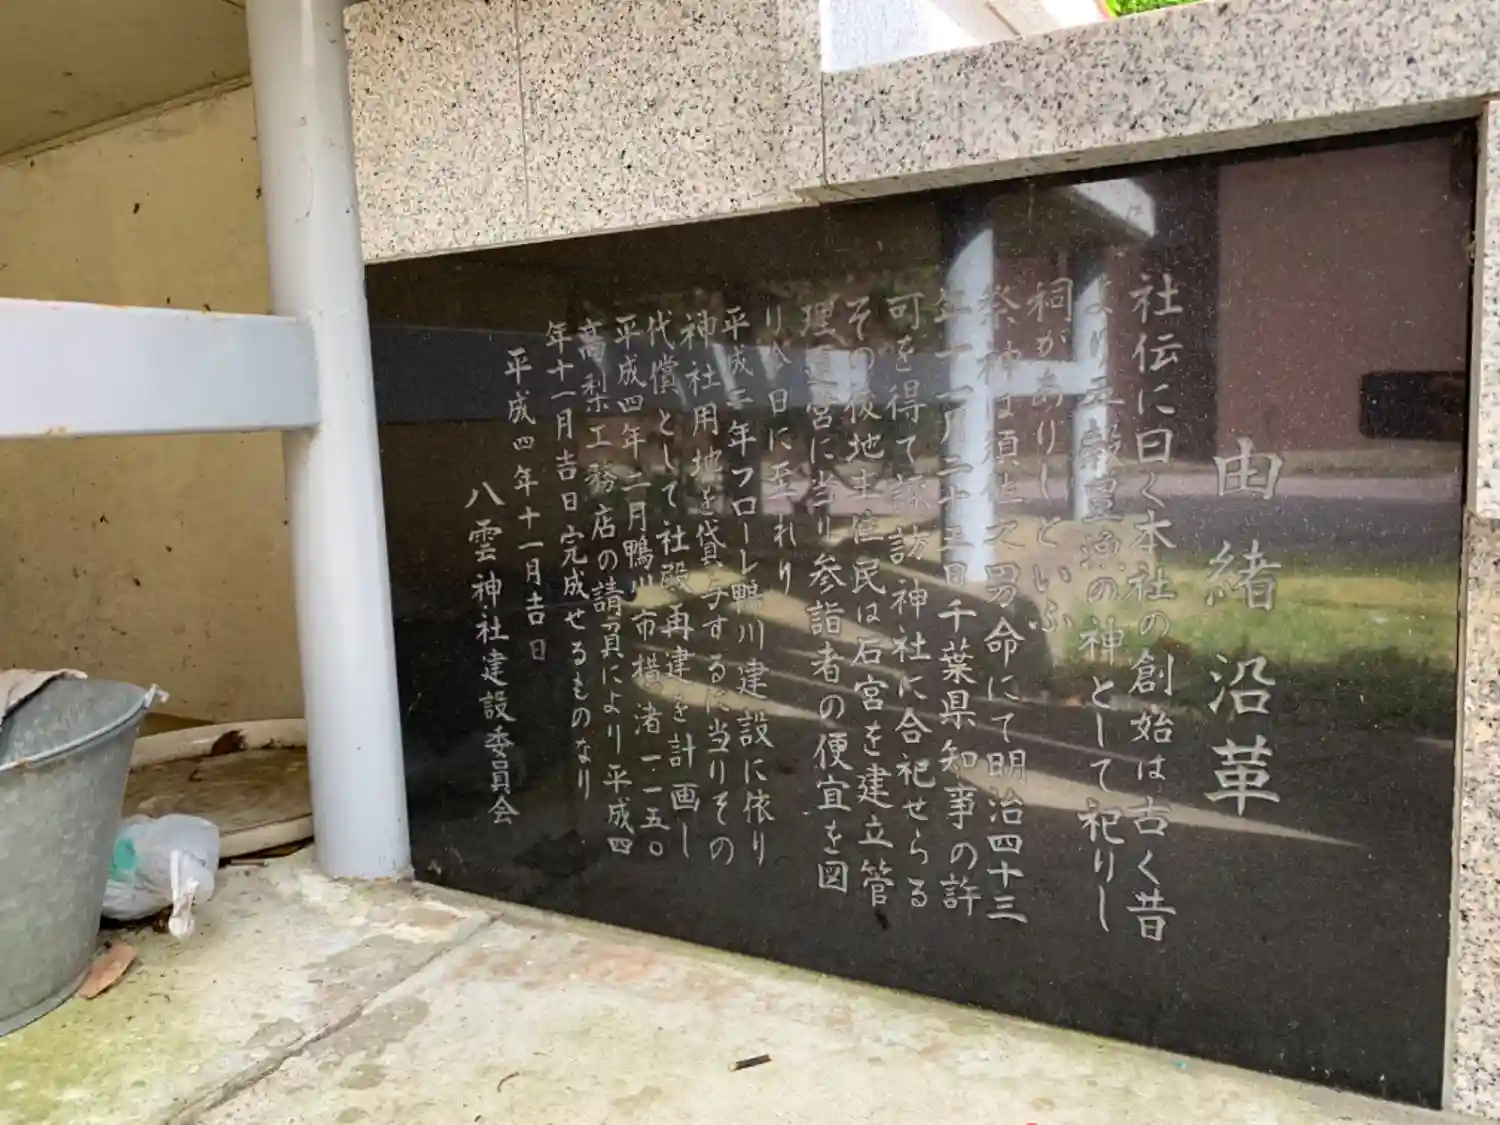 由緒沿革
社伝に曰く本社の創始は古く昔
より五穀豊漁の神として祀りし
祠がありしといふ
祭神は須佐之男命にて明治四十三
年十一月二十三日千葉県知事の許
可を得て諏訪神社に合祀せらる
その後地主住民は石宮を建立管
理運営に当り参詣者の便宜を図
り今日に至れり
平成三年フローレ鴨川建設に依り
神社用地を貸与するに当りその
代償として社殿再建を計画し
平成四年二月鴨川市横渚一一五〇
高梨工務店の請負により平成四
年十一月吉日完成せるものなり
平成四年十一月吉日
八雲神社建設委員会